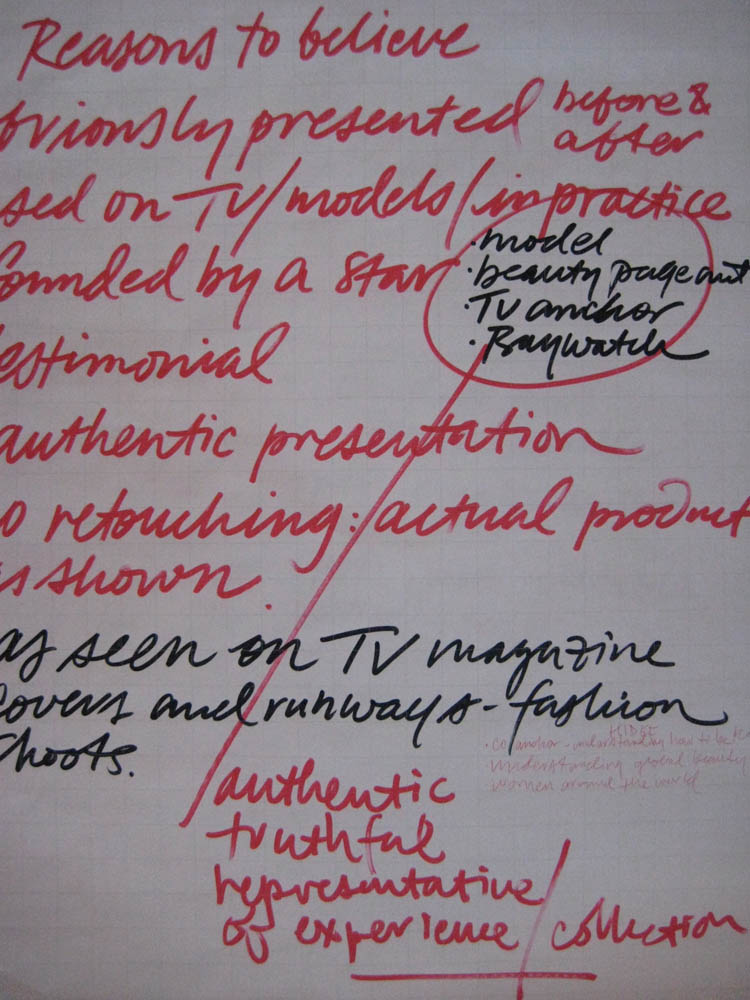 Reasons to believe
bviously presented before &
after
sed on TV/models/in practice
founded by a star
· model
· beauty pageant
· TV anchor
· Baywatch
estimonial
authentic presentation
o retouching: actual product
is shown.
as seen on TV magazine
covers and runways - fashion
shoots.
HIDE
· co anchor - understanding how to be
understanding global beauty
women around the world
authentic
truthful
representative
of experience / collection